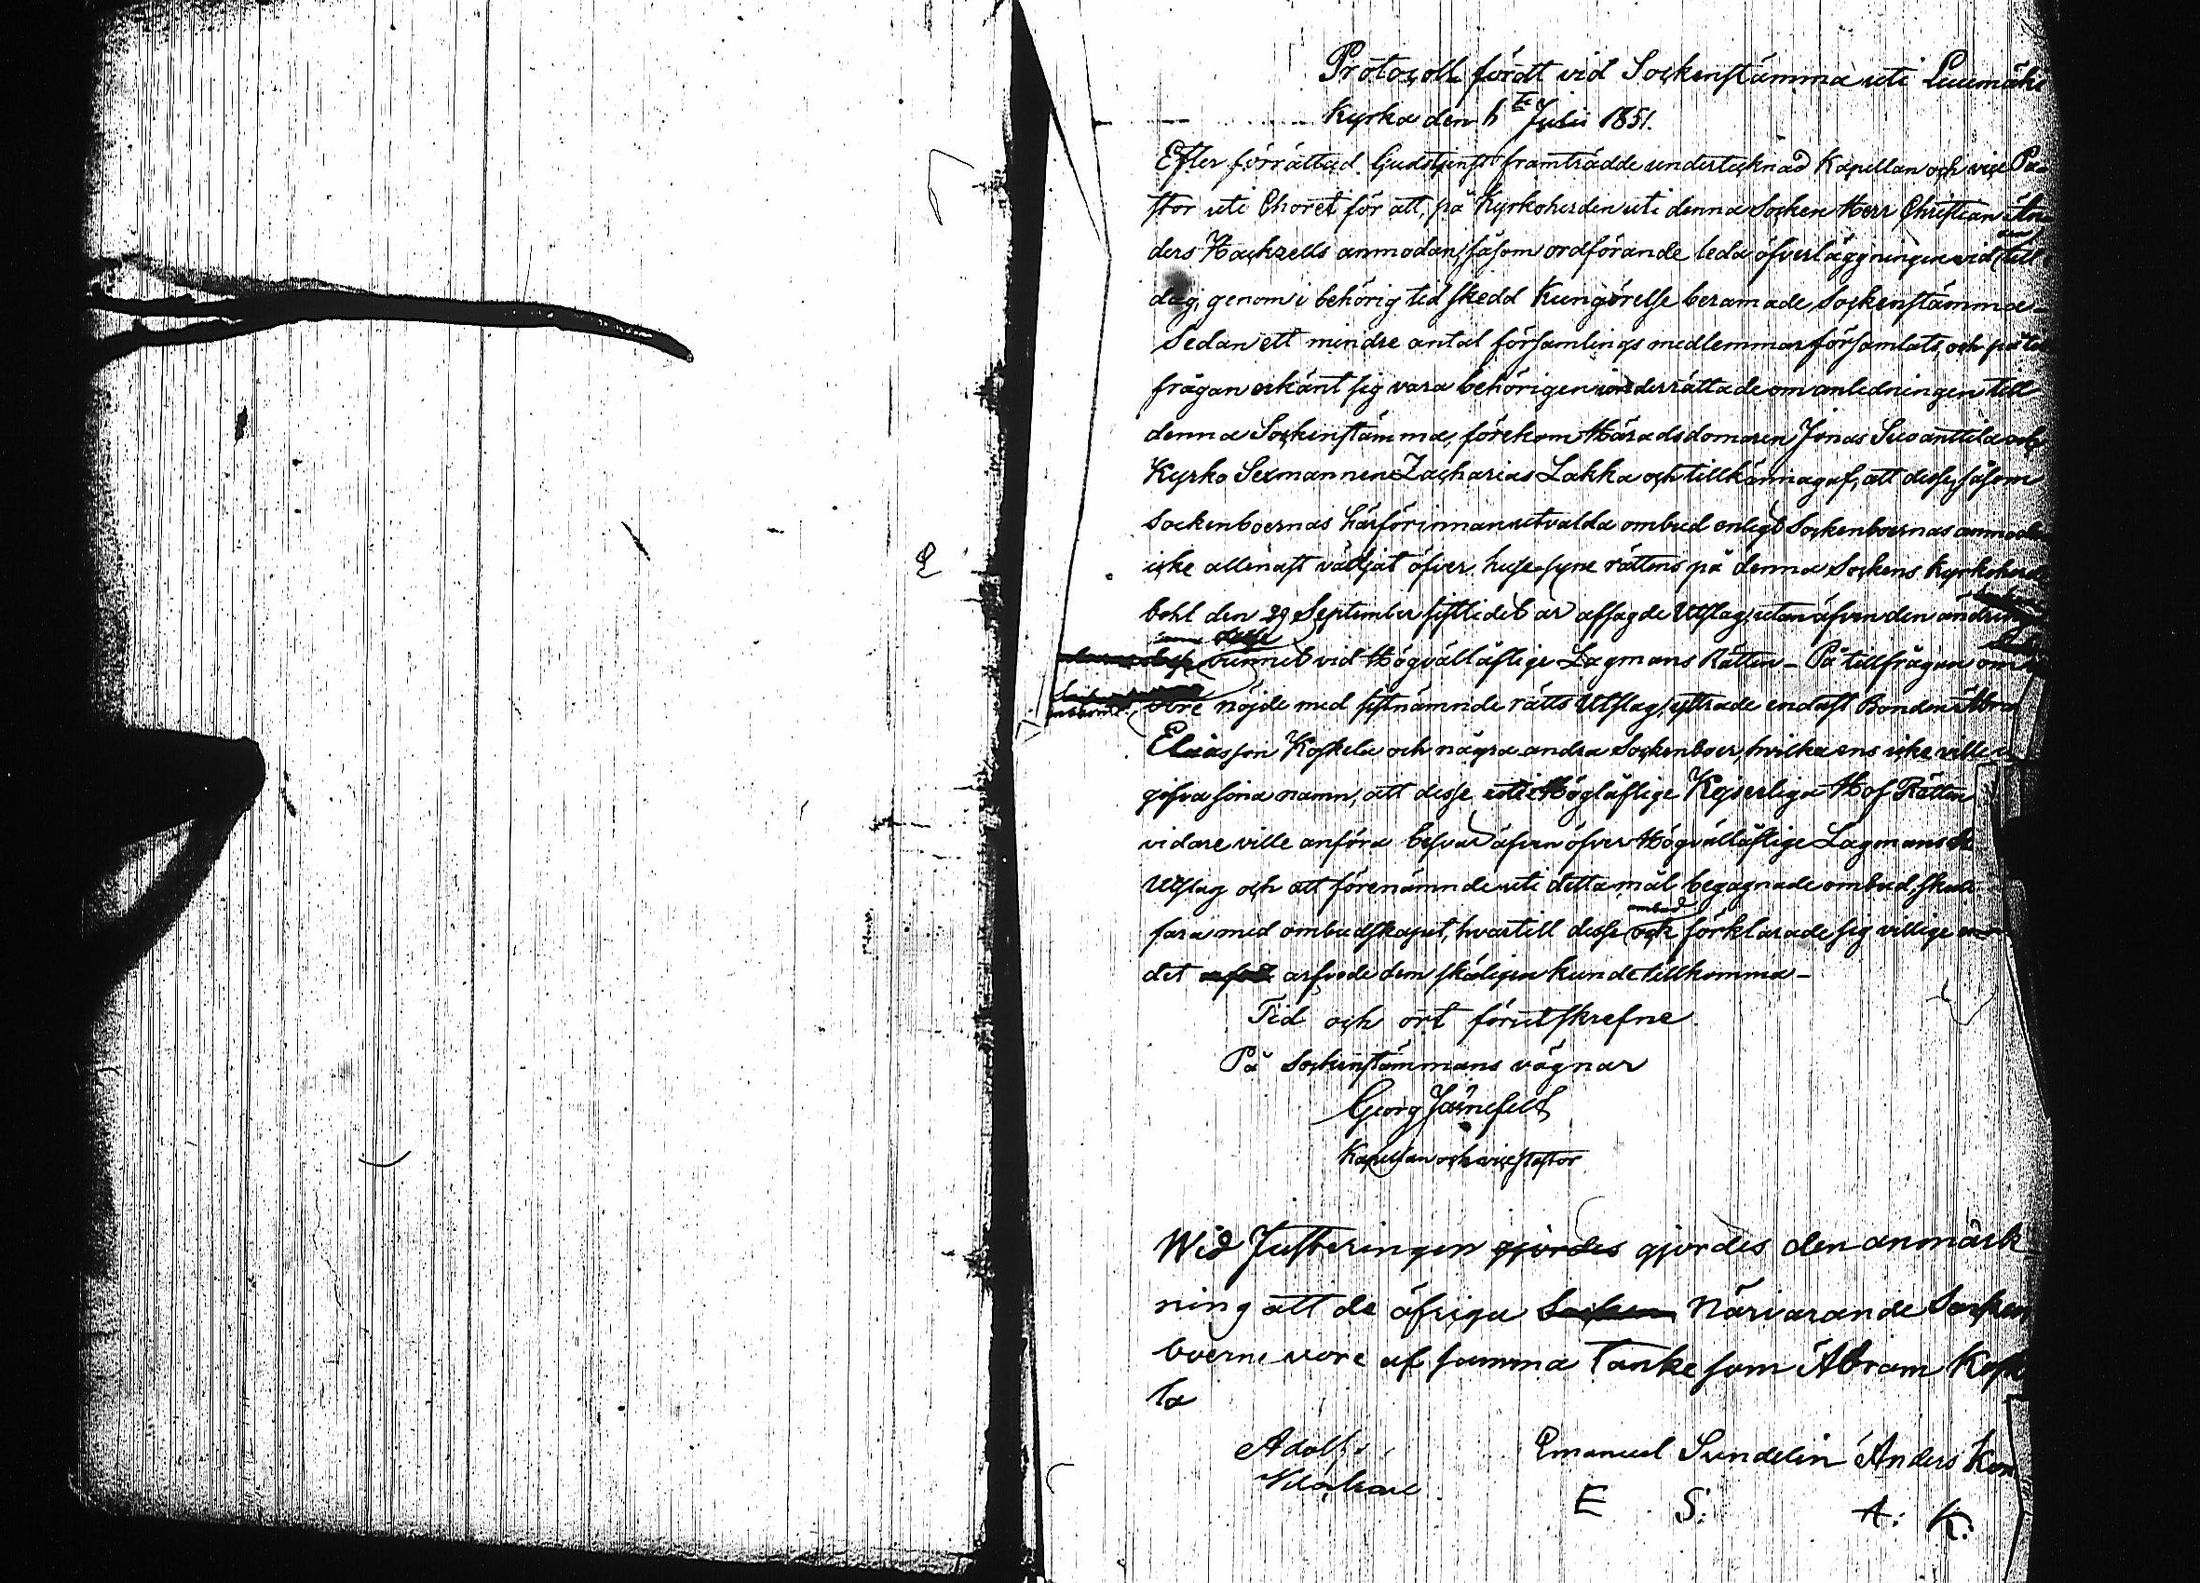 Protocoll fördt vid Sockenstämma uti Luumäki
Kyrka den 6 Julii 1851.
Efter förrättad Gudstjenst framträdde undertecknad Kapellan och vice Pa-
stor uti Choret för att, på Kyrkoherden uti denna Socken Herr Christian An
ders Hackzells anmodan, såsom ordförande leda öfverläggningen vid till
dag, genom i behörig tid skedd Kungörelse beramade Sockenstämma-
Sedan ett mindre antal församlings medlemmar församlats och på till
frågan erkänt sig vara behörigen underrättade om anledningen till
denna Sockenstämma, förekom Häradsdomaren Jonas Suoanttila och
Kyrko Sexmannen Zacharias Lakka och tillkännagaf, att desse, såsom
Sockenboernas härförinnan utvalda ombud enligt Sockenboernas anmodan
icke allenast vädjat öfver huse syne rättens på denna Sockens Kyrkoherde
bohl den 29 September sistlidet år afsagde Utslag, utan äfven den ändring
som desse
vunnet vid Högvällöflige Lagmans Rätten - På tillfrågan om
vore nöjde med sistnämnde rätts Utslag, yttrade endast Bonden Abra
Eliasson Koskela och några andra Sockenboer, hvilka ens icke ville
gifva sina namn, att desse uti Höglöflige Kejserliga Hof Rätten
vidare ville anföra besvär äfven öfver Högvällöflige Lagmans R
Utslag och att förenämnde uti detta mål begagnade ombud skulle
ombud
fara med ombudskapet, hvartill desse och förklarade sig villige
det arfvode dem skäligen kunde tillkomma-
Tid och ort förutskrefne.
På Sockenstämmans vägnar
Georg Järnefelt
Kapellan och vice Pastor
Wid Justeringen gjordes gjordes den anmärk
ning att de öfriga Socken Närvarande Socken
boerne vore af samma Tanke som Abram Koske
la
Adolf
Emanuel Sundelin Anders Kon
E S: A: K: